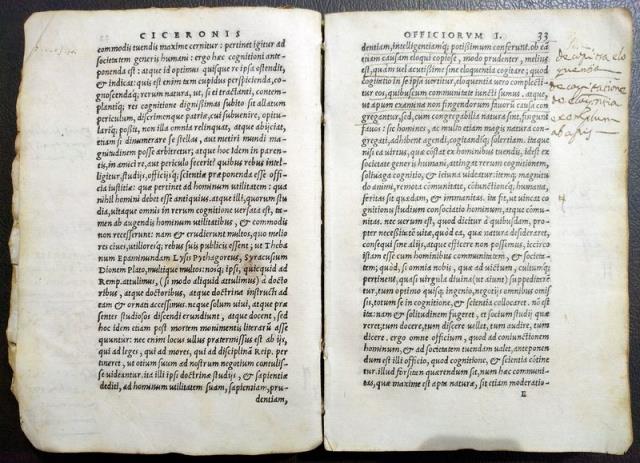 CICERONIS
commodis tuendis maxime cernitur: pertinet igitur ad
societatem generis humani: ergo hæc cognitioni ante-
ponenda est: atque id optimus quisque re ipsa ostendit,
& indicat: quis est enim tam cupidus perspicienda, co-
gnoscendaq; rerum natura, ut, si ei tractanti, contem-
plantiq; res cognitione dignissimas subito sit allatum
periculum, discrimenque patriæ, cui subuenire, opitu-
lariq; possit, non illa omnia relinquat, atque abijciat,
etiam si dinumerare se stellas, aut metiri mundi ma-
gnitudinem posse arbitretur; atque hoc idem in paren-
tis, in amici re, aut periculo fecerit? quibus rebus intel-
ligitur, studijs, officijsq; scientiæ præponenda esse offi-
cia iustitiæ: quæ pertinet ad hominum utilitatem: qua
nihil homini debet esse antiquius. atque illi, quorum stu-
dia, uitaque omnis in rerum cognitione uersata est, ta-
men ab augendis hominum utilitatibus, & commodis
non recesserunt: nam & erudierunt multos, quo melio
res ciues, utilioresq; rebus suis publicis essent; ut Theba
num Epaminundam Lysis Pythagoreus, Syracusium
Dionem Plato, multique multos: nosq; ipsi, quicquid ad
Remp. attulimus, (si modo aliquid attulimus) a docto
ribus, atque doctrina instructi ad
eam & ornati accessimus. neque solum uiui, atque præ
sentes studiosos discendi erudiunt, atque docent, sed
hoc idem etiam post mortem monimentis literarū asse
quuntur: nec enim locus ullus prætermissus est ab ijs,
qui ad leges, qui ad mores, qui ad disciplinā Reip. per
tineret, ut otium suum ad nostrum negotium contulis-
se uideantur. ita illi ipsi doctrinæ studijs, & sapientiæ
dediti, ad hominum utilitatem suam, sapientiam, pru-
dentiam,
OFFICIORVM I. 33
dentiam, intelligentiamq; potissimum conferunt. ob eā
etiam causam eloqui copiose, modo prudenter, melius
est, quàm uel acutissime sine eloquentia cogitare; quod
cogitatio in se ipsa uertitur, eloquentia uero complecti-
tur eos, quibuscum communitate iuncti sumus. atque,
ut apum examina non fingendorum fauorū causa con-
gregantur, sed, cum congregabilia natura sint, fingunt
fauos: sic homines, ac multo etiam magis natura con-
gregati, adhibent agendi, cogitandiq; solertiam. itaque
nisi ea uirtus, quæ costat ex hominibus tuendis, idest ex
societate generis humani, attingat rerum cognitionem,
soliuaga cognitio, & ieiuna uideatur: itemq; magnitu
do animi, remota cōmunitate, cōiunctioneq; humana,
feritas sit quædam, & immanitas. ita fit, ut uincat co
gnitionis studium consociatio hominum, atque cōmu-
nitas. nec uerum est, quod dicitur à quibusdam, pro-
pter necessitatē uitæ, quod ea, quæ natura desideraret,
consequi sine alijs, atque efficere non possemus, iccirco
istam esse cum hominibus communitatem, & societa-
tem; quod, si omnia nobis, quæ ad uictum, cultumq;
pertinent, quasi uirgula diuina (ut aiunt) suppeditaren-
tur, tum optimo quisq; ingenio, negotijs omnibus omis
sis, totum se in cognitione, & scientia collocaret. nō est
ita: nam & solitudinem fugeret, et socium studij quæ
reret, tum docere, tum discere uellet, tum audire, tum
dicere. ergo omne officium, quod ad coniunctionem
hominum, & ad societatem tuendam ualet, anteponen
dum est illi officio, quod cognitione, & scientia cōtine
tur. illud forsitan quærendum sit, num hæc communi-
tas, quæ maxime est apta naturæ, sit etiam moderatio-
E